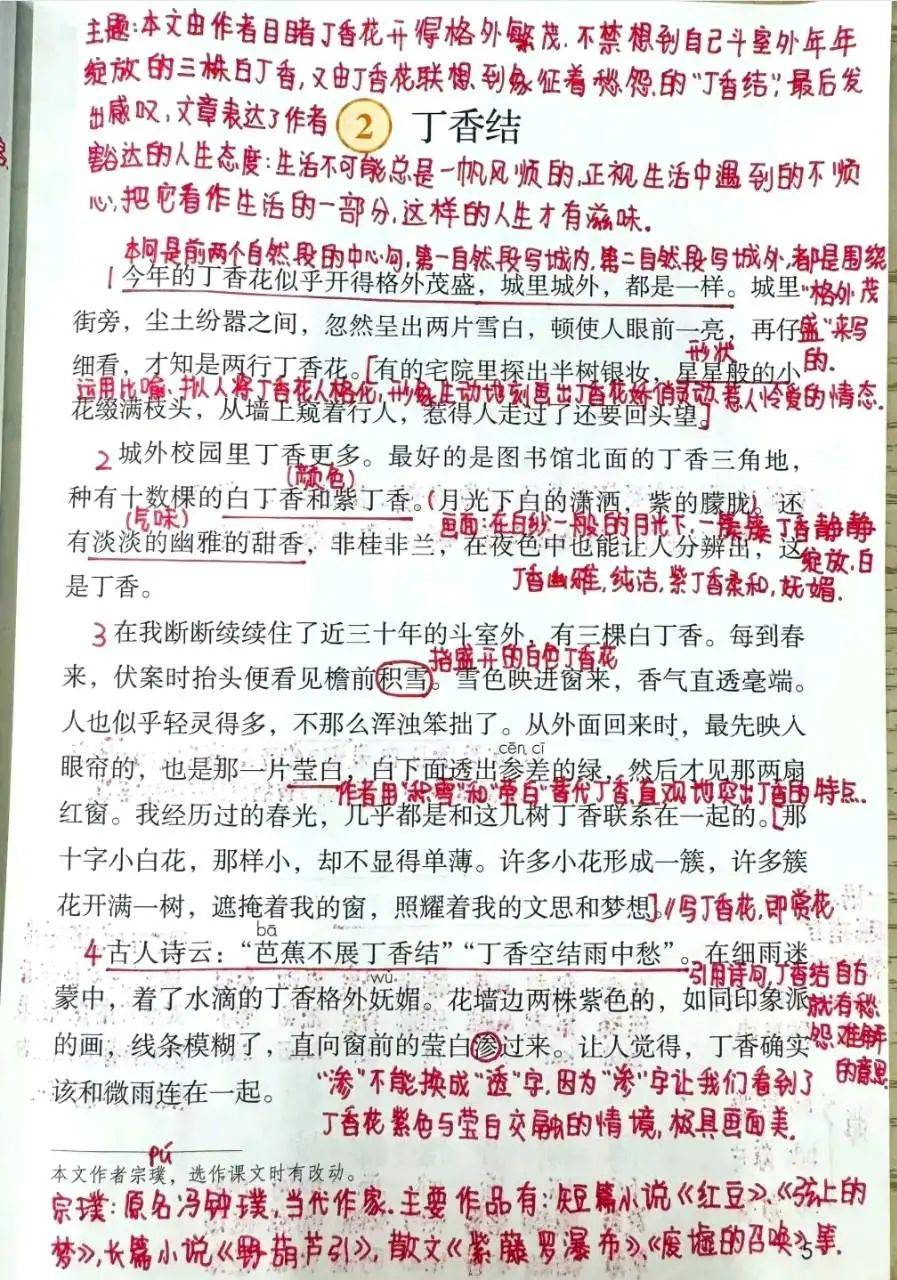 主题:本文由作者目睹丁香花开得格外繁茂,不禁想到自己斗室外年年
绽放的三株白丁香,又由丁香花联想到象征着愁怨的“丁香结”,最后发
出感叹,文章表达了作者
2 丁香结
豁达的人生态度:生活不可能总是一帆风顺的,正视生活中遇到的不顺
心,把它看作生活的一部分,这样的人生才有滋味。
本句是前两个自然段的中心句,第一自然段写城内,第二自然段写城外,都是围绕
“格外茂
盛”来写
的.
1 今年的丁香花似乎开得格外茂盛,城里城外,都是一样。城里
街旁,尘土纷嚣之间,忽然呈出两片雪白,顿使人眼前一亮,再仔
形状
细看,才知是两行丁香花。[有的宅院里探出半树银妆,星星般的小
运用比喻、拟人将丁香花人格化,形象生动地刻画出丁香花娇俏灵动、惹人怜爱的情态.
花缀满枝头,从墙上窥着行人,惹得人走过了还要回头望。]
2 城外校园里丁香更多。最好的是图书馆北面的丁香三角地,
(颜色)
种有十数棵的白丁香和紫丁香。(月光下白的潇洒,紫的朦胧)。还
(气味)
画面:在白纱一般的月光下,一簇簇丁香静静
绽放,白
丁香幽雅,纯洁,紫丁香柔和,妩媚.
有淡淡的幽雅的甜香,非桂非兰,在夜色中也能让人分辨出,这
是丁香。
3 在我断断续续住了近三十年的斗室外,有三棵白丁香。每到春
指盛开的白色丁香花
来,伏案时抬头便看见檐前积雪。雪色映进窗来,香气直透毫端。
人也似乎轻灵得多,不那么浑浊笨拙了。从外面回来时,最先映入
cēn cī
眼帘的,也是那一片莹白,白下面透出参差的绿,然后才见那两扇
作者用“积雪”和“莹白”替代丁香,直观地突出丁香的特点.
红窗。我经历过的春光,几乎都是和这几树丁香联系在一起的。[那
十字小白花,那样小,却不显得单薄。许多小花形成一簇,许多簇
花开满一树,遮掩着我的窗,照耀着我的文思和梦想]。//写丁香花,即赏花
bā
4 古人诗云:“芭蕉不展丁香结”“丁香空结雨中愁”。在细雨迷
引用诗词,丁香结自古
就有愁
怨难解
的意思
wǔ
蒙中,着了水滴的丁香格外妩媚。花墙边两株紫色的,如同印象派
的画,线条模糊了,直向窗前的莹白渗过来。让人觉得,丁香确实
该和微雨连在一起。
“渗”不能换成“透”字,因为“渗”字让我们看到了
丁香花紫色与莹白交融的情境,极具画面美.
pú
本文作者宗璞,选作课文时有改动。
宗璞:原名冯钟璞,当代作家.主要作品有:短篇小说《红豆》、《弦上的
梦》,长篇小说《野葫芦引》,散文《紫藤萝瀑布》、《废墟的召唤》等.
5